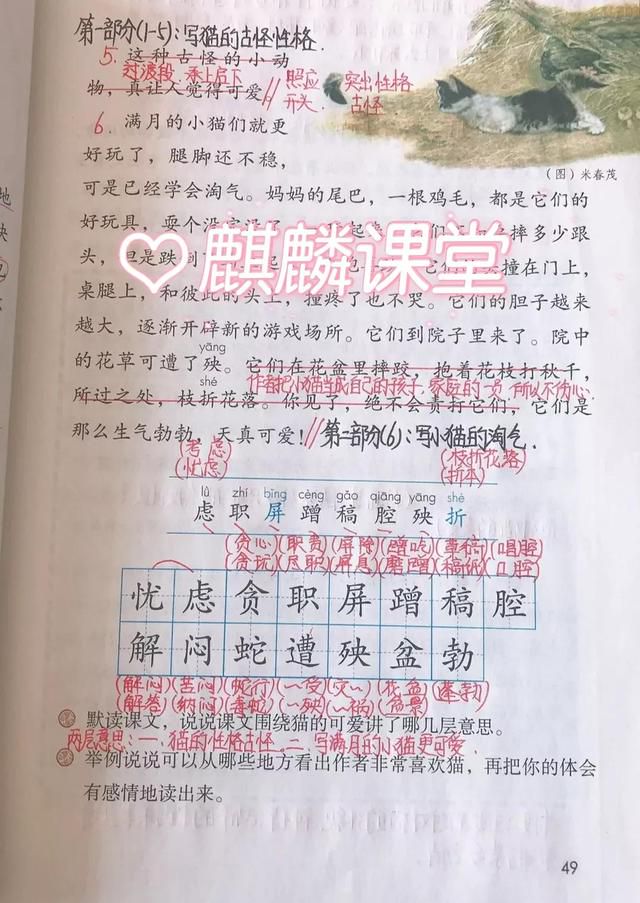 第一部分(1-5):写猫的古怪性格.
5. 这种古怪的小动
过渡段:承上启下
物，真让人觉得可爱。//
照应
开头.
突出性格
古怪
6. 满月的小猫们就更
好玩了，腿脚还不稳，
(图) 米春茂
可是已经学会淘气。妈妈的尾巴，一根鸡毛，都是它们的
好玩具，耍个没完没了。 摔多少跟
头，但是跌倒 撞在门上，
桌腿上，和彼此的头上，撞疼了也不哭。它们的胆子越来
越大，逐渐开辟新的游戏场所。它们到院子里来了。院中
yāng
的花草可遭了殃。它们在花盆里摔跤，抱着花枝打秋千，
shé
作者把小猫当成自己的孩子,家庭的一员,所以不伤心.
所过之处，枝折花落。你见了，绝不会责打它们，它们是
那么生气勃勃，天真可爱！//
第二部分(6):写小猫的淘气.
♡麒麟课堂
(考虑)
(忧虑)
(枝折花落)
(折本)
lǜ zhí bǐng cèng gǎo qiāng yāng shé
虑 职 屏 蹭 稿 腔 殃 折
(贪心)(职责)(屏除)(蹭吃)(草稿)(唱腔)
(贪玩)(尽职)(屏息)(磨蹭)(稿纸)(口腔)
忧 虑 贪 职 屏 蹭 稿 腔
解 闷 蛇 遭 殃 盆 勃
(解闷)(苦闷)(蛇行)(~受)(灾~)(花盆)(蓬勃)
(纳闷)(毒蛇)(~殃)(~祸)(盆景)
默读课文，说说课文围绕猫的可爱讲了哪几层意思。
两层意思:一.猫的性格古怪.二.写满月的小猫更可爱.
举例说说可以从哪些地方看出作者非常喜欢猫，再把你的体会
有感情地读出来。
49